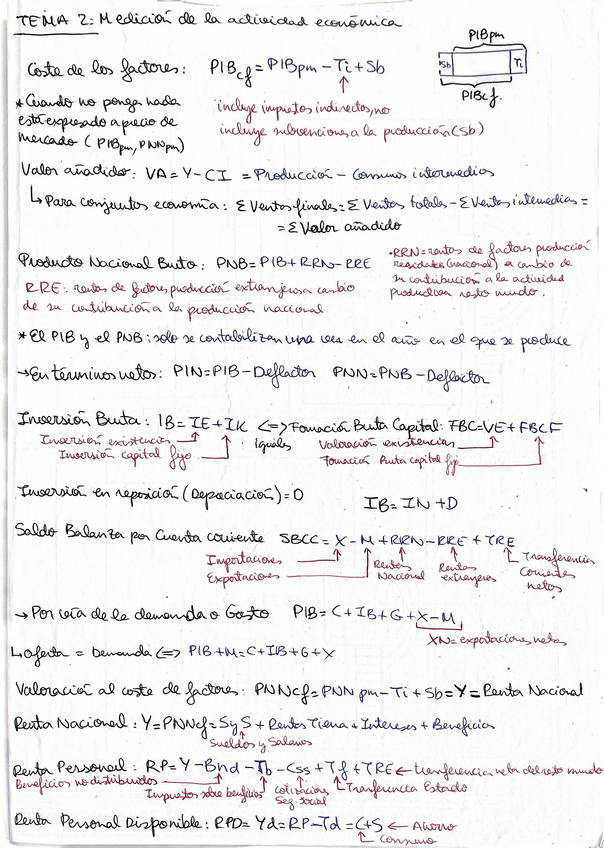 TEMA 2: Medición de la actividad económica
PIBpm
Sb Ti
PIBcf.
Coste de los factores: PIBcf = PIBpm - Ti + Sb
incluye impuestos indirectos, no
incluye subvenciones a la producción (Sb)
* Cuando no ponga nada
está expresado a precio de
mercado (PIBpm, PNNpm)
Valor añadido: VA = Y - CI = Producción - Consumos intermedios
↳ Para conjuntos economía: Σ Ventas finales = Σ Ventas totales - Σ Ventas intermedias =
= Σ Valor añadido
Producto Nacional Bruto: PNB = PIB + RRN - RRE
RRE: rentas de factores producción extranjeros a cambio
de su contribución a la producción nacional
· RRN = rentas de factores producción
residentes (nacional) a cambio de
su contribución a la actividad
productiva resto mundo.
* El PIB y el PNB: solo se contabilizan una vez en el año en el que se produce
→ En términos netos: PIN = PIB - Deflactor PNN = PNB - Deflactor
Inversión Bruta: IB = IE + IK <=> Formación Bruta Capital: FBC = VE + FBCF
iguales
Inversión existencias
Inversión capital fijo
Valoración existencias
Formación Bruta capital fijo
Inversión en reposición (Depreciación) = D
IB = IN + D
Saldo Balanza por Cuenta corriente SBCC = X - M + RRN - RRE + TRE
Importaciones
Exportaciones
Rentas
Nacional
Rentas
extranjeras
Transferencia
Corrientes
netas
→ Por vía de la demanda o Gasto PIB = C + IB + G + X - M
XN = exportaciones netas
↳ Oferta = Demanda <=> PIB + M = C + IB + G + X
Valoración al coste de factores: PNNcf = PNNpm - Ti + Sb = Y = Renta Nacional
Renta Nacional: Y = PNNcf = SyS + Rentas Tierra + Intereses + Beneficios
Sueldos y Salarios
Renta Personal: RP = Y - Bnd - Tb - Css + Tf + TRE ← transferencia neta del resto mundo
Beneficios no distribuidos
Impuestos sobre beneficios
cotizaciones
Seg. social
Transferencia Estado
Renta Personal Disponible: RPD = Yd = RP - Td = C + S ← Ahorro
Consumo